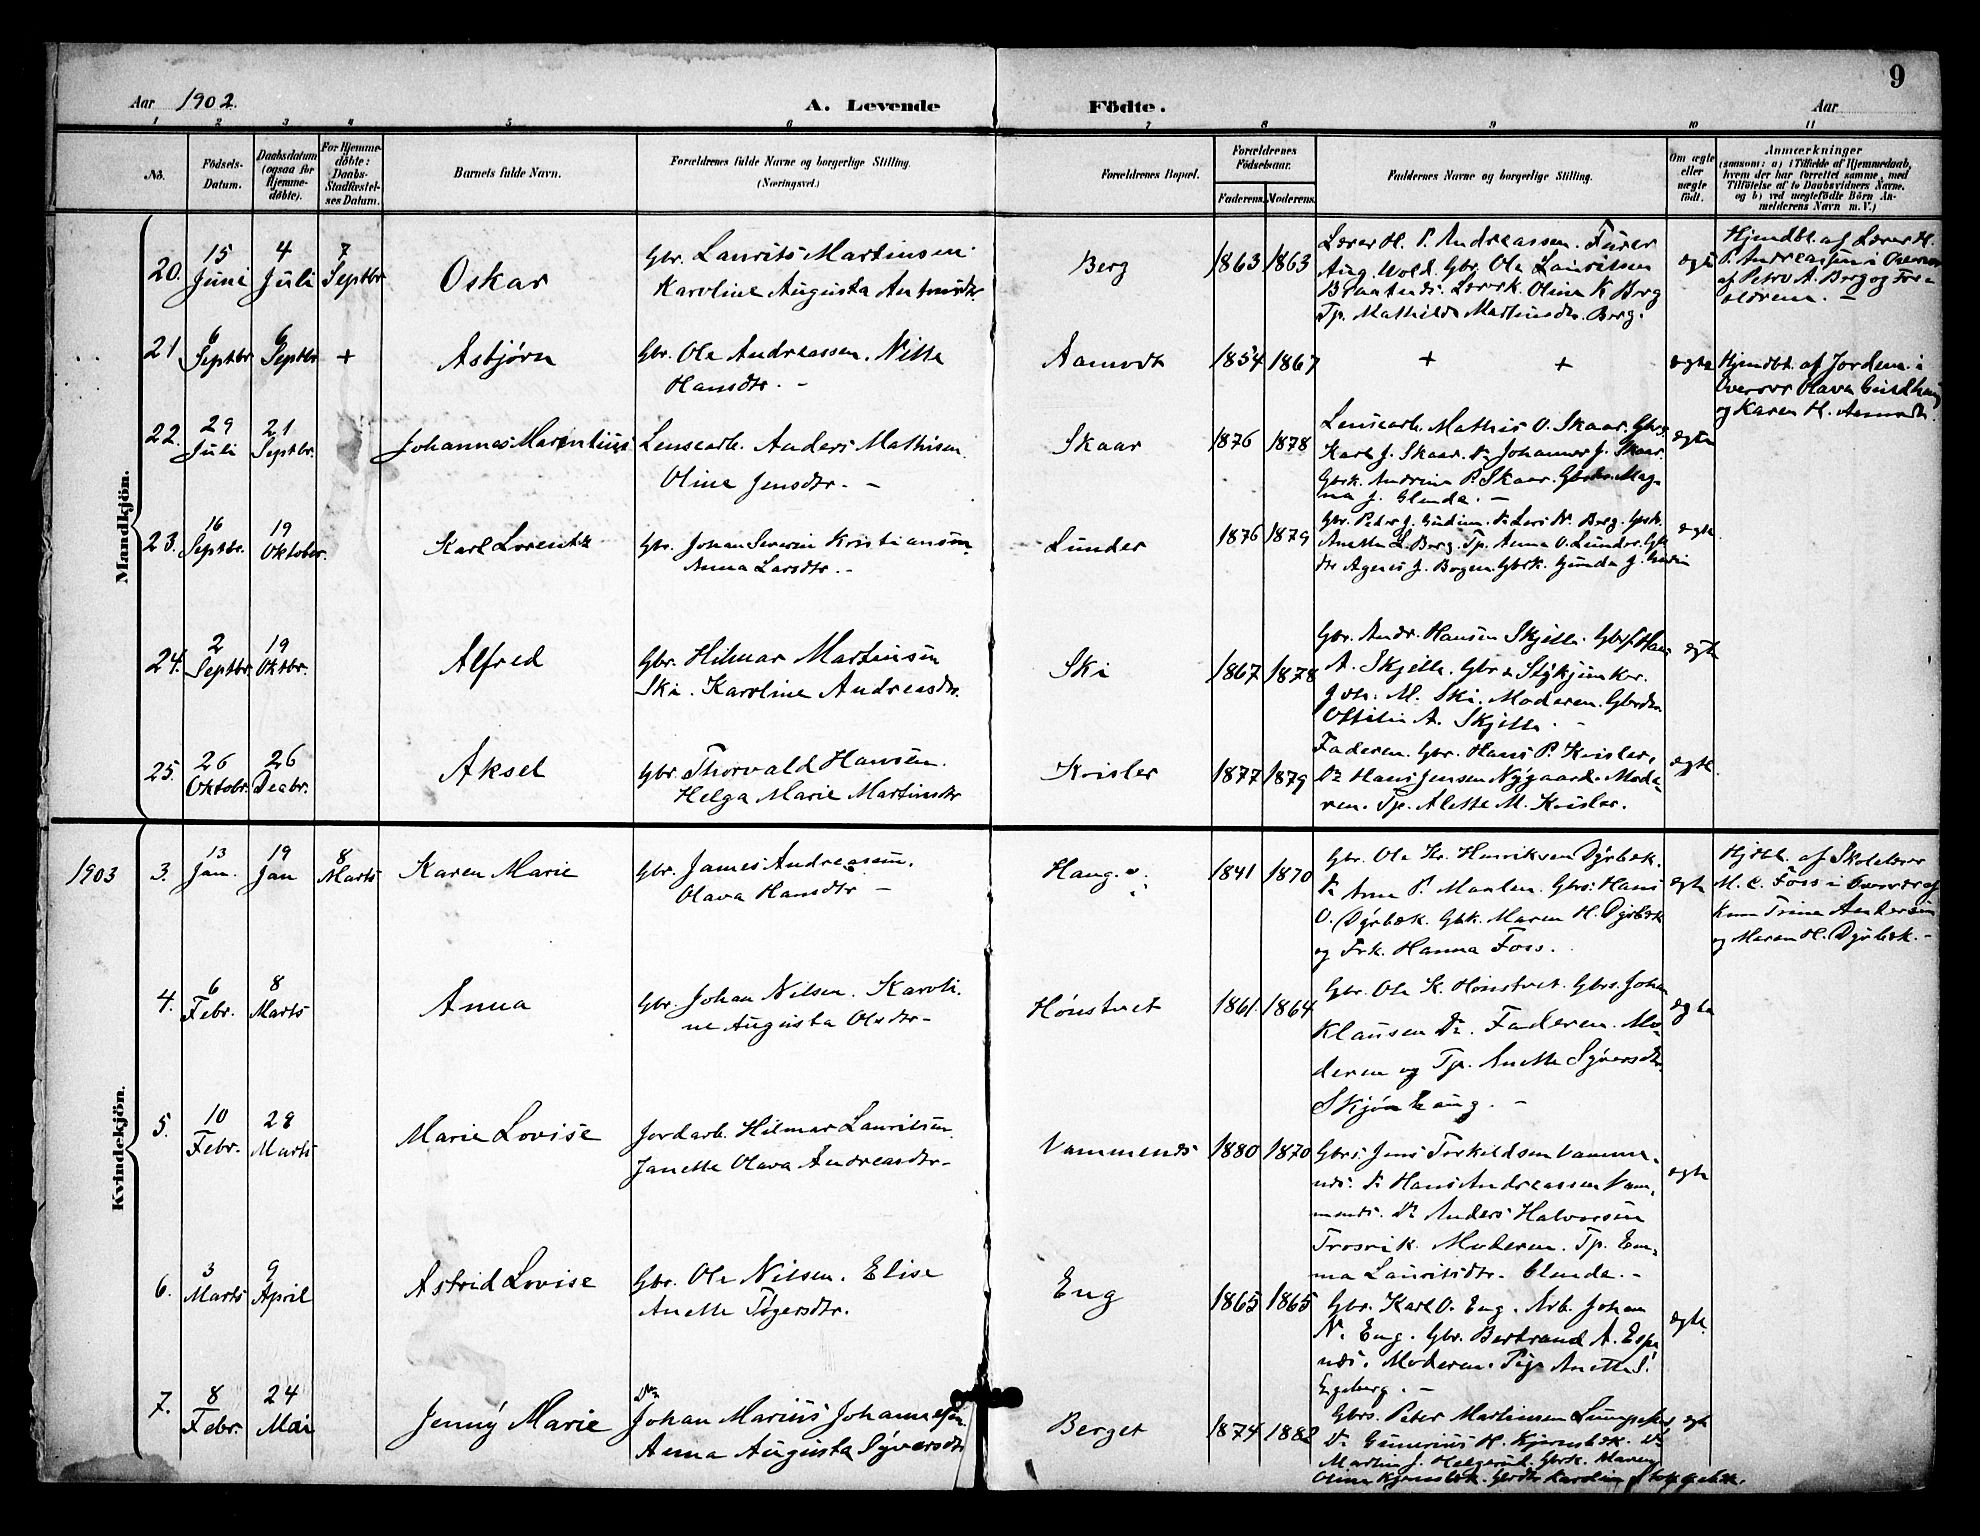 9
Aar 1902. A. Levende Födte. Aar
1 2 3 4 5 6 7 8 9 10 11
No. Födsels-Datum. Daabsdatum (ogsaa for Hjemme-döbte). For Hjemme-döbte: Daabs-Stadfæstel-ses Datum. Barnets fulde Navn. Forældrenes fulde Navne og borgerlige Stilling. (Næringsvei.) Forældrenes Bopæl. Forældrenes Födselsaar. Faderens. Moderens. Faddernes Navne og borgerlige Stilling. Om ægte eller uægte födt. Anmærkninger
(samsom: a) i Tilfælde af Hjemmedaab,
hvem der har forrettet samme, med
Tilföielse af to Daabsvidners Navne,
og b) ved uægtefödte Börn An-
melderens Navn m. V.)
Mandkjön.
20. 15 Juni 4 Juli 7 Septbr Oskar
Gbr. Laurits Martinsen
Karoline Augusta
Berg 1863 1863
Lærer H. P. Andreassen. Fürer
Aug. Wold. Gbr. Ole Lauritsen
Lærerk. Oline K. Berg
Tp. Mathilde Martinsdtr. Berg.
ægte
Hjemdbt. af Lærer H.
P. Andreassen i Overvær
af Petra A. Berg og For-
ældrene. –
21 6 Septbr. 6 Septbr + Asbjørn
Gbr. Ole Andreassen.
Hansdtr. –
Aamodt 1854 1867 + + ægte
Hjemdbt. af Jordem. i
Overvær Olava
og Karen H. Aamodt
22. 29 Juli 21 Septbr. Johannes Marentius
Lensearb. Anders Mathisen.
Oline Jensdtr. –
Skaar 1876 1878
Lensearb. Mathis O. Skaar. Gbrs.
Karl J. Skaar. Do Johannes J. Skaar.
Gbrk. Andrine P. Skaar. Gbrdtr. Mag-
na J. –
ægte
23. 16 Septbr. 19 Oktober. Karl Lorentz
Gbr. Johan Severin Kristiansen
Anna Larsdtr. –
Lunder 1876 1879
Gbr. Peter J. Do Lars N. Berg. Gbrk.
Anette L. Berg. Tp. Anna O. Lunder.
Agnes J. Bogen. Gbrk. Gunda J.
ægte.
24. 2 Septbr. 19 Oktbr. Alfred
Gbr. Hilmar Martinsen
Ski. Karoline Andreasdtr.
Ski 1867 1878
Gbr. Andr. Hansen Skjelle.
A. Skjelle. Gbr
Joh. M. Ski. Moderen. Gbrdtr.
A. Skjelle. –
ægte
25. 26 Oktobr. 26 Decbr. Aksel
Gbr. Thorvald Hansen.
Helga Marie Martinsdtr
Kvisler 1877 1879
Faderen. Gbr. Hans P. Kvisler,
Do Hans Jensen Nygaard. Mode-
ren. Tp. Alette M. Kvisler.
ægte.
1903
Kvindekjön.
3. 13 Jan. 19 Jan 8 Marts Karen Marie
Gbr. James Andreasen.
Olava Hansdtr –
Haug 1841 1870
Gbr. Ole Kr. Henriksen Dyrbæk.
Do Anne P. Gbrs. Hans
O. Dyrbæk. Gbk. Maren H. Dyrbæk
og Frk. Hanna Foss.
ægte
Hjdbt. af Skolelærer
M. C. Foss i Overvær af
Trine Andersen
og Maren H. Dyrbæk. –
4. 6 Febr. 8 Marts Anna
Gbr. Johan Nilsen. Karoli-
ne Augusta Olsdtr –
Hønstvet 1861. 1864
Gbr. Ole K. Hønstvet. Gbrs. Joha
Klausen Do. Faderen. Mo-
deren og Tp. Anette Syversdtr.
Skjønhaug. –
ægte
5. 10 Febr. 29 Marts Marie Lovise
Jordarb. Hilmar Lauritsen.
Janette Olava Andreasdtr –
Vammenæs 1880 1870
Gbrs. Jens Torkildsen Vamme-
næs. Do Hans Andreassen Vam-
menæs. Do Anders Halvorsen
Trosvik. Moderen. Tp. Em-
ma Lauritsdtr. –
ægte
6. 3 Marts 9 April Astrid Lovise
Gbr. Ole Nilsen. Elise
Anette Tøgersdtr.
Eng 1865 1865
Gbr. Karl O. Eng. Arb. Johan
N. Eng. Gbr. Bertrand A. Espe-
næs. Moderen. Pige Anette S.
Egeberg. –
ægte.
7. 8 Febr. 24 Mai Jenny Marie
Do
Johan Marius Johannesen
Anna Augusta Syversdtr
Berget 1874 1882
Gbrs. Peter Martinsen
Do Gunerius H. Kjernsbæk. Do
Martin J. Helgerud. Gbrk. Maren
Oline Kjernsbæk. Gbrdtr Karoline
ægte